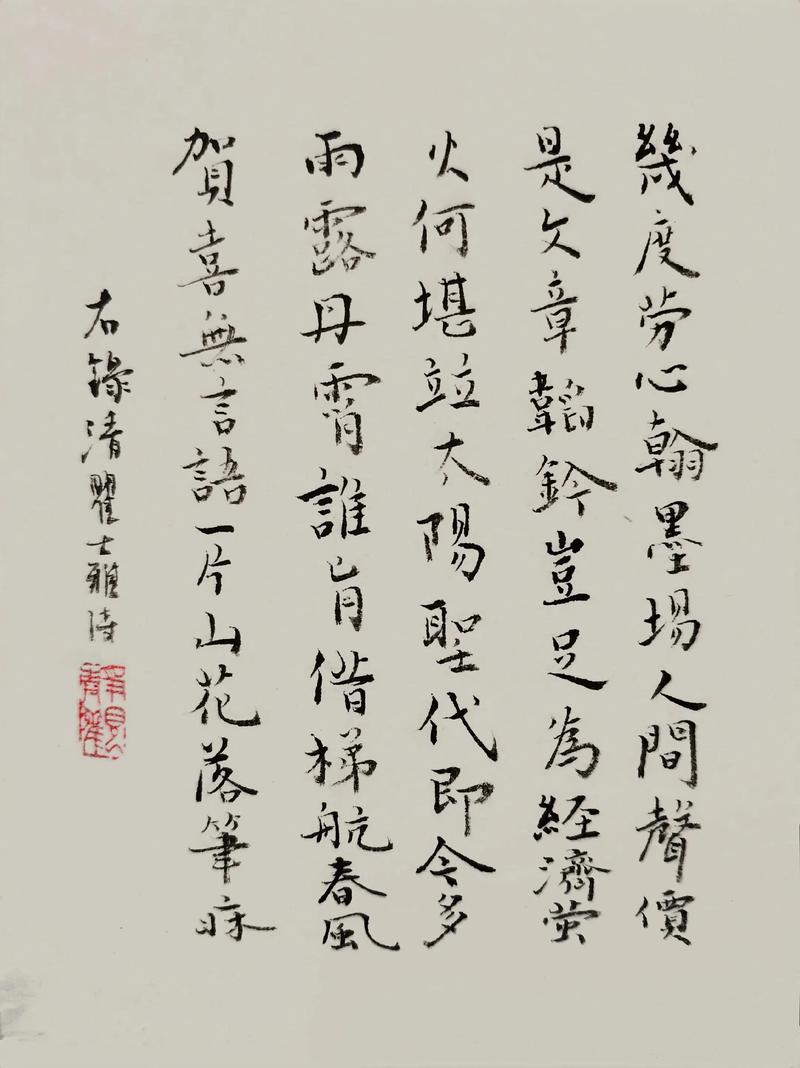 幾度勞心翰墨場人間聲價
是文章韜鈐豈足為經濟螢
火何堪竝太陽聖代即今多
雨露丹霄誰肯借梯航春風
賀喜無言語一片山花落筆牀
右錄清瞿士雅詩